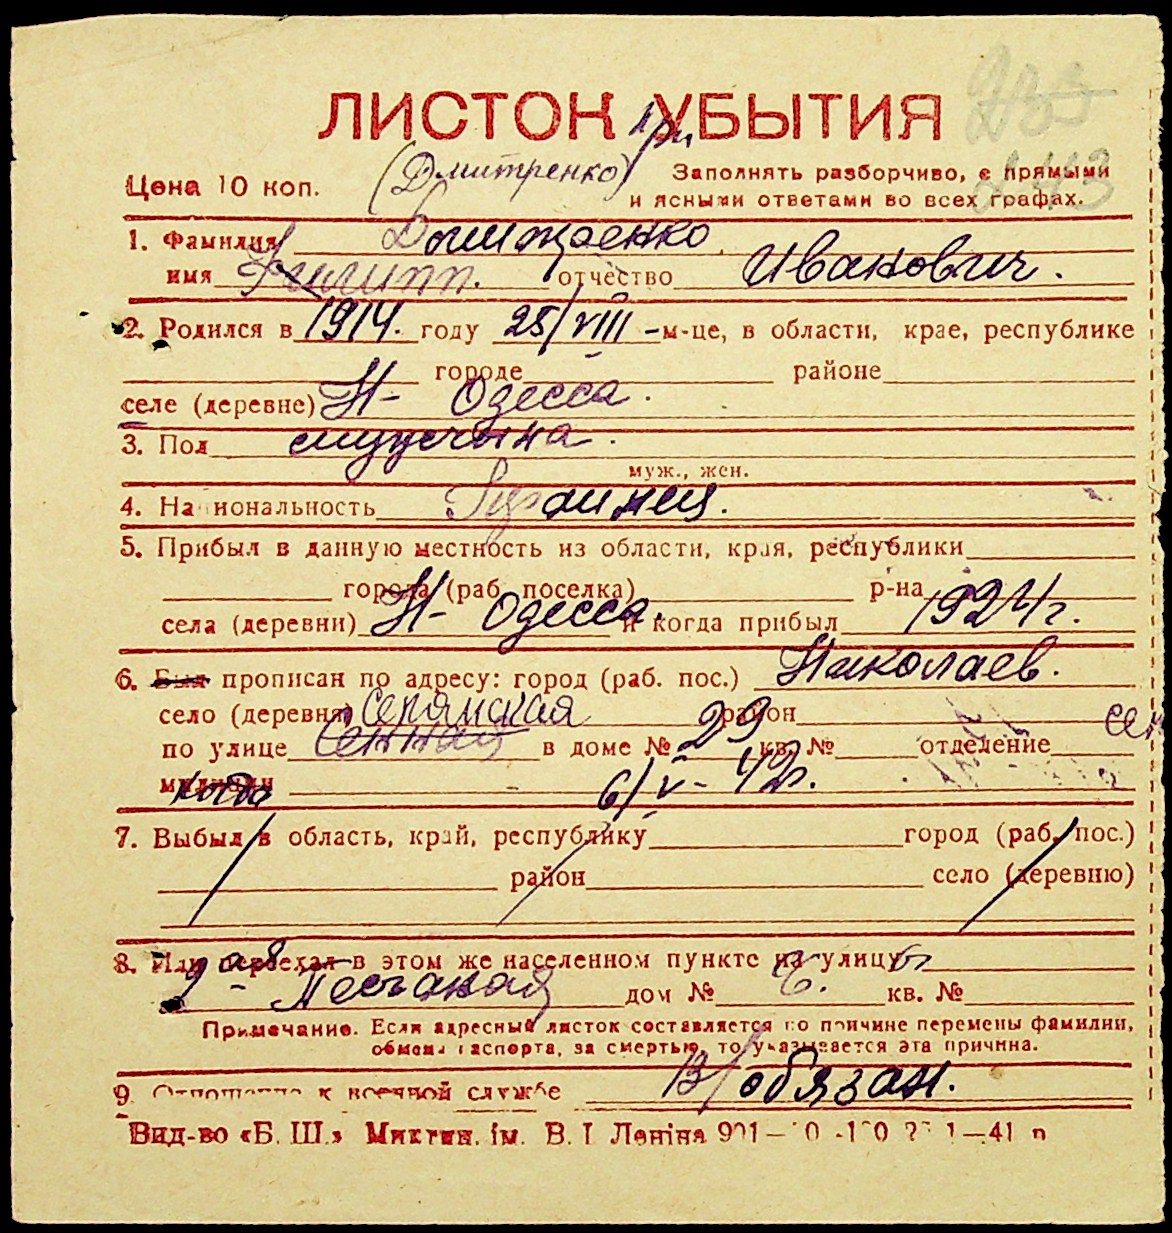 ЛИСТОК УБЫТИЯ
Цена 10 коп. (Дмитренко) Заполнять разборчиво, с прямыми
и ясными ответами во всех графах.
1. Фамилия
имя Филипп. отчество Иванович.
2. Родился в 1914. году 25/VIII-м-це, в области, крае, республике
городе районе
селе (деревне) Н- Одесса.
3. Пол мужчина.
муж., жен.
4. Национальность Украинец.
5. Прибыл в данную местность из области, края, республики
города (раб. поселка) р-на
села (деревни) Н- Одесса. и когда прибыл 1924г.
6. Был прописан по адресу: город (раб. пос.) Николаев.
село (деревня) район
по улице Сенная в доме № 29 кв. № отделение
милиции когда 6/V- 42г.
7. Выбыл в область, край, республику город (раб. пос.)
район село (деревню)
8. Или переехал в этом же населенном пункте на улицу
2-ая Песчаная дом № 6. кв. №
Примечание. Если адресный листок составляется по причине перемены фамилии,
обмена паспорта, за смертью, то указывается эта причина.
9. Отношение к военной службе В/обязан.
Вид-во «Б. Ш.» Микплн. ім. В. І Леніна